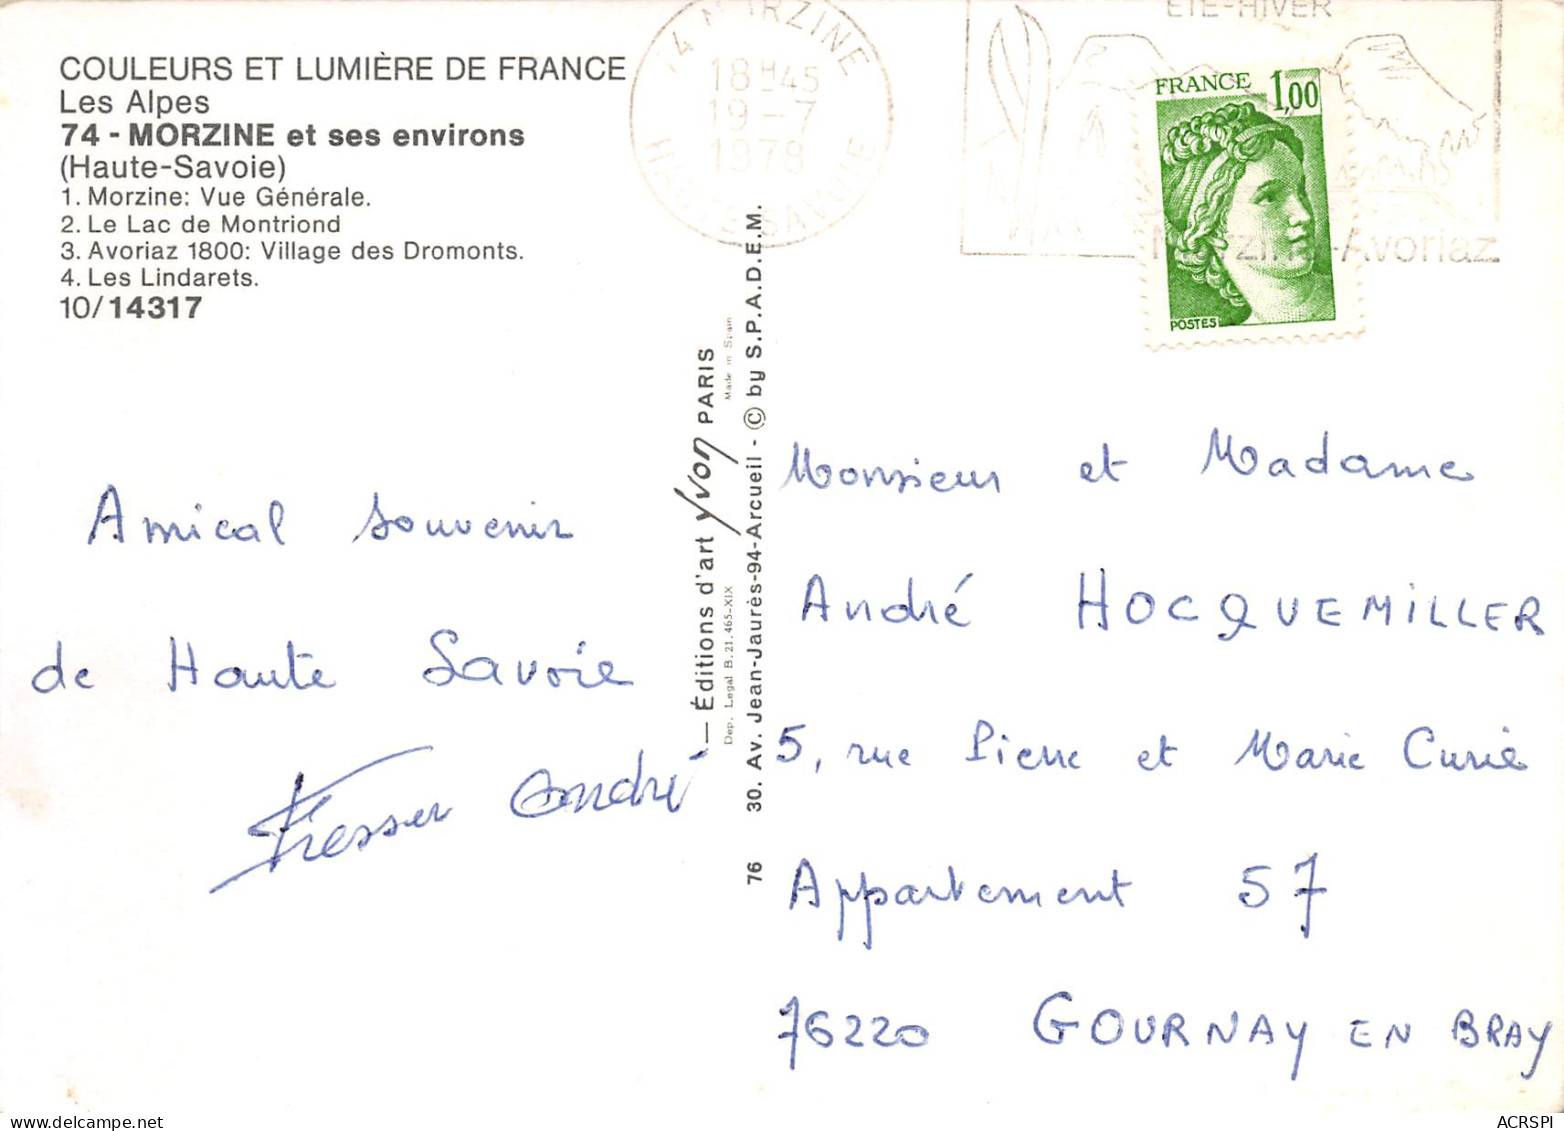 COULEURS ET LUMIÈRE DE FRANCE
Les Alpes
74 - MORZINE et ses environs
(Haute-Savoie)
1. Morzine: Vue Générale.
2. Le Lac de Montriond
3. Avoriaz 1800: Village des Dromonts.
4. Les Lindarets.
10/14317
74 MORZINE
18H45
19-7
1978
HAUTE-SAVOIE
ETE-HIVER
Morzine-Avoriaz
FRANCE 1,00
POSTES
Amical souvenir
de Haute Savoie
André
76 — Éditions d'art Yvon PARIS
Dep. Legal B. 21.465-XIX Made in Spain
30. Av. Jean-Jaurès-94-Arcueil - © by S.P.A.D.E.M.
Monsieur et Madame
André HOCQUEMILLER
5, rue Pierre et Marie Curie
Appartement 57
76220 GOURNAY EN BRAY
www.delcampe.net
ACRSPI